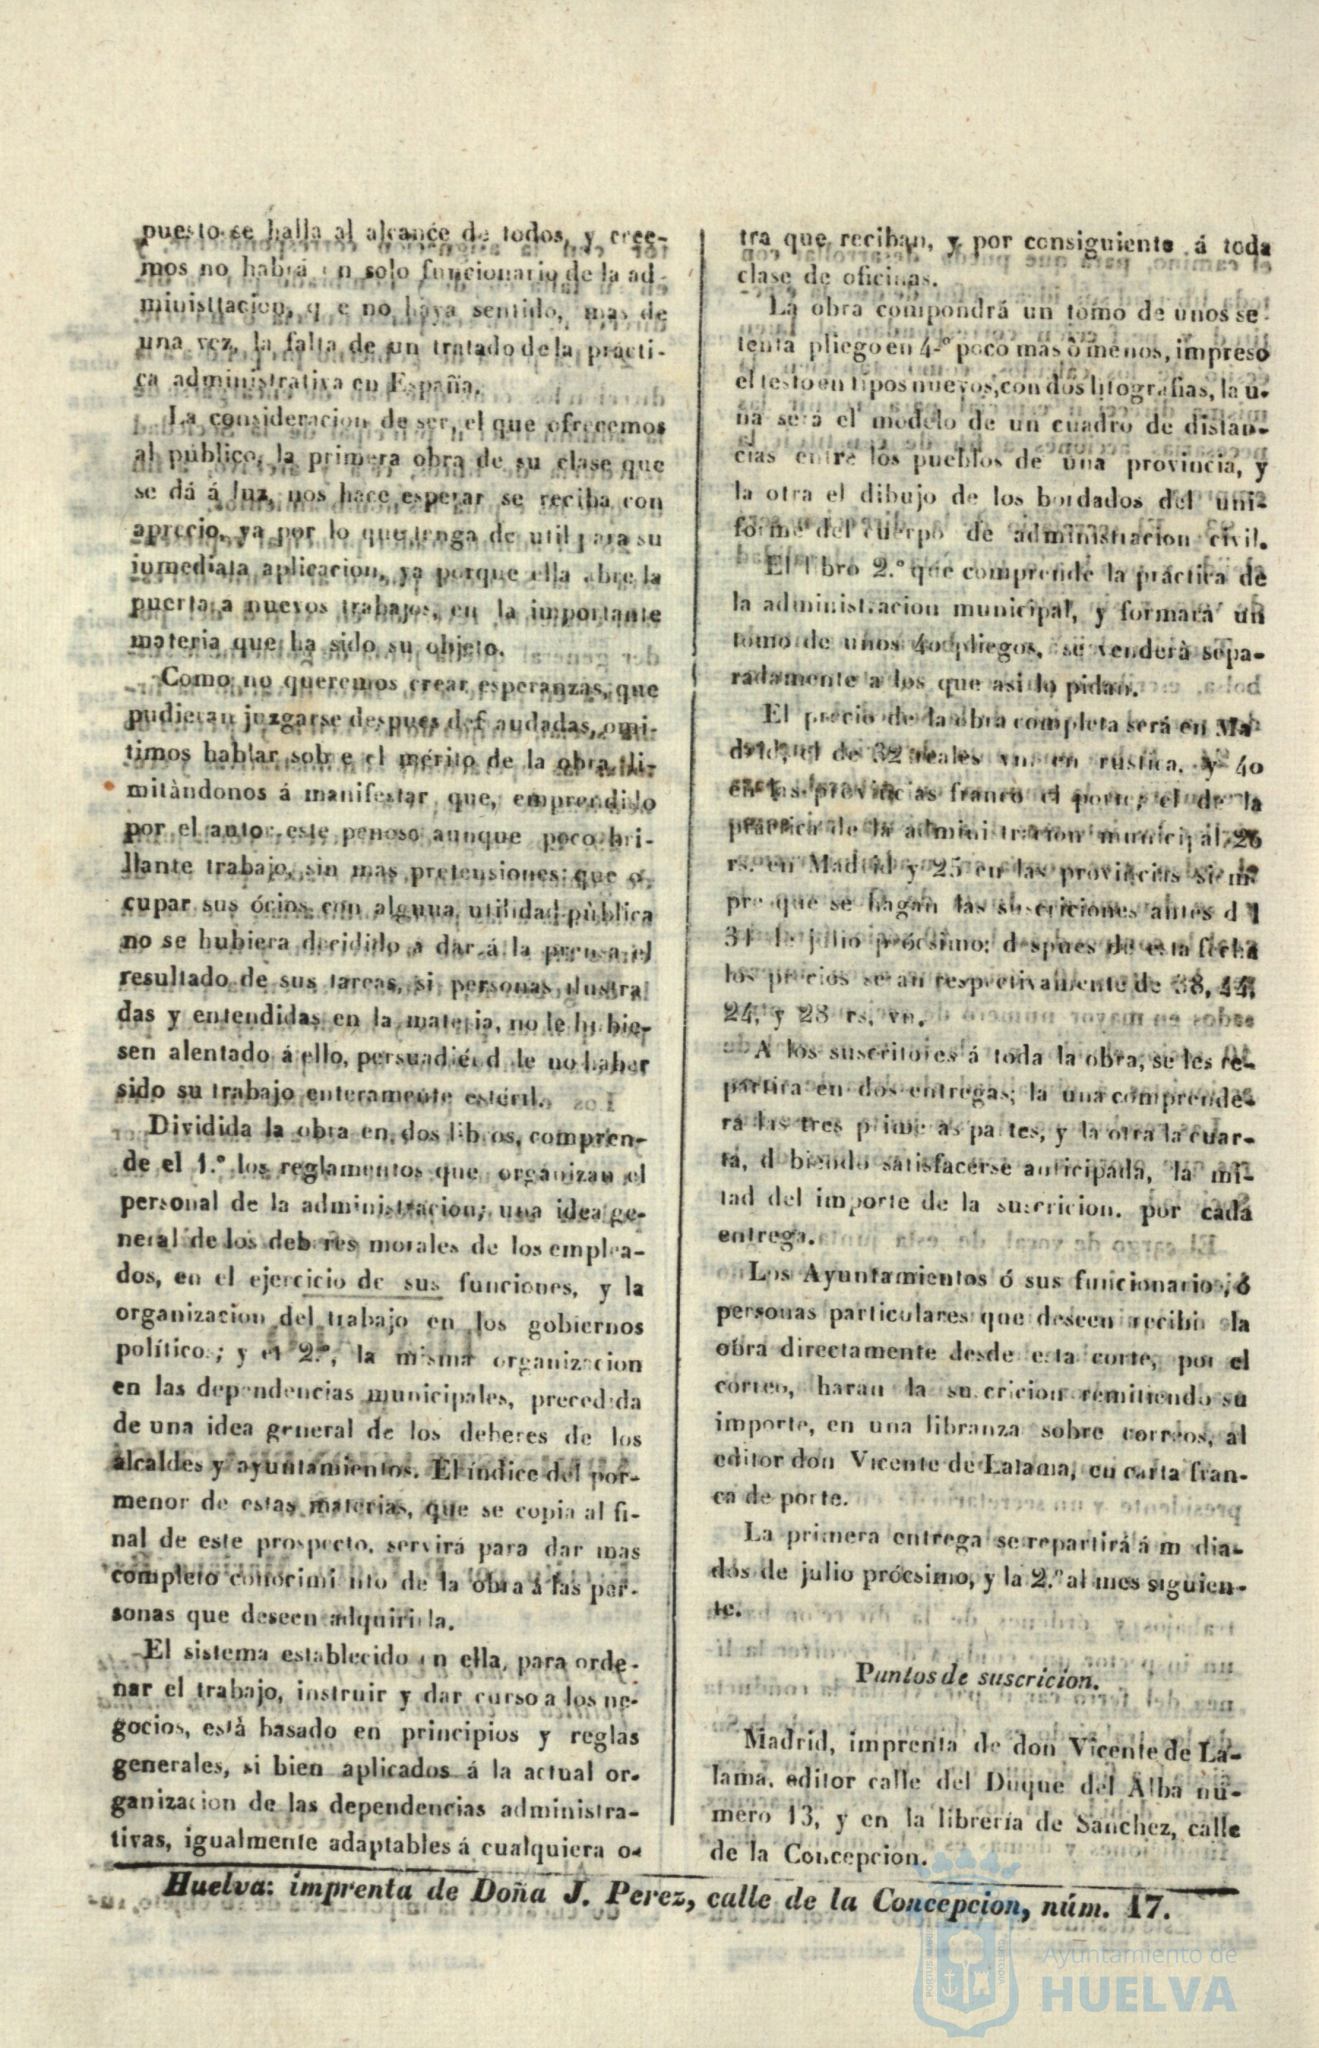 puesto se halla al alcance de todos, y cree-
mos no habrá un solo funcionario de la ad
ministracion, q e no haya sentido, mas de
una vez, la falta de un tratado de la practi-
ca administrativa en España.
La consideracion de ser, el que ofrecemos
al público, la primera obra de su clase que
se dá á luz, nos hace esperar se reciba con
aprecio, ya por lo que tenga de util para su
inmediata aplicacion, ya porque ella abre la
puerta a nuevos trabajos, en la importante
materia que ha sido su objeto.
Como no queremos crear esperanzas, que
pudieran juzgarse despues def audadas, omi-
timos hablar sob e el mérito de la obra, li-
mitàndonos á manifestar que, emprendido
por el autor este penoso aunque poco bri-
llante trabajo, sin mas pretensiones que o-
cupar sus ócios con alguna utilidad pùblica
no se hubiera decidido a dar á la prensa el
resultado de sus tareas, si personas ilustra
das y entendidas en la materia, no le hubie-
sen alentado á ello, persuadiéndole no haber
sido su trabajo enteramente estéril.
Dividida la obra en dos libros, compren-
de el 1.º los reglamentos que organizan el
personal de la administracion; una idea ge-
neral de los deberes morales de los emplea-
dos, en el ejercicio de sus funciones, y la
organizacion del trabajo en los gobiernos
político ; y el 2.º, la misma organizacion
en las dependencias municipales, precedida
de una idea general de los deberes de los
alcaldes y ayuntamientos. El índice del por-
menor de estas materias, que se copia al fi-
nal de este prospecto, servirá para dar mas
completo conocimi nto de la obra á las per-
sonas que deseen adquirirla.
El sistema establecido en ella, para orde-
nar el trabajo, instruir y dar curso a los ne-
gocios, está basado en principios y reglas
generales, si bien aplicados á la actual or-
ganizacion de las dependencias administra-
tivas, igualmente adaptables á cualquiera o-
tra que reciban, y por consiguiente á toda
clase de oficinas.
La obra compondrá un tomo de unos se-
tenta pliego en 4.º poco mas ò menos, impreso
el testo en tipos nuevos, con dos litografias, la u-
na será el modelo de un cuadro de distan-
cias entre los pueblos de una provincia, y
la otra el dibujo de los bordados del uni-
forme del cuerpo de administracion civil.
El libro 2.º que comprende la práctica de
la administracion municipal, y formará un
tomo de unos 40 pliegos, se venderà sepa-
radamente a los que asi lo pidan.
El precio de la obra completa será en Ma
drid, el de 32 reales vn. en rústica, y 40
en las provincias franco el porte; el de la
práctica de la administracion municipal, 20
rs. en Madrid y 25 en las provincias siem-
pre que se hagan las suscriciones antes d l
31 de julio prócsimo: despues de esta fecha
los precios seran respectivamente de 38, 44,
24, y 28 rs. vn.
A los suscritores á toda la obra, se les re-
partirá en dos entregas; la una comprende-
rá las tres primeras partes, y la otra la cuar-
ta, debiendo satisfacerse anticipada, la mi-
tad del importe de la suscricion, por cada
entrega.
Los Ayuntamientos ó sus funcionarios, ó
personas particulares que deseen recibir la
obra directamente desde esta corte, por el
correo, haran la suscricion remitiendo su
importe, en una libranza sobre correos, al
editor don Vicente de Lalama, en carta fran-
ca de porte.
La primera entrega se repartirá á m dia-
dos de julio prócsimo, y la 2.ª al mes siguien-
te.
Puntos de suscricion.
Madrid, imprenta de don Vicente de La-
lama, editor calle del Duque del Alba nú-
mero 13, y en la librería de Sanchez, calle
de la Concepcion.
Huelva: imprenta de Doña J. Perez, calle de la Concepcion, núm. 17.
Ayuntamiento de
HUELVA